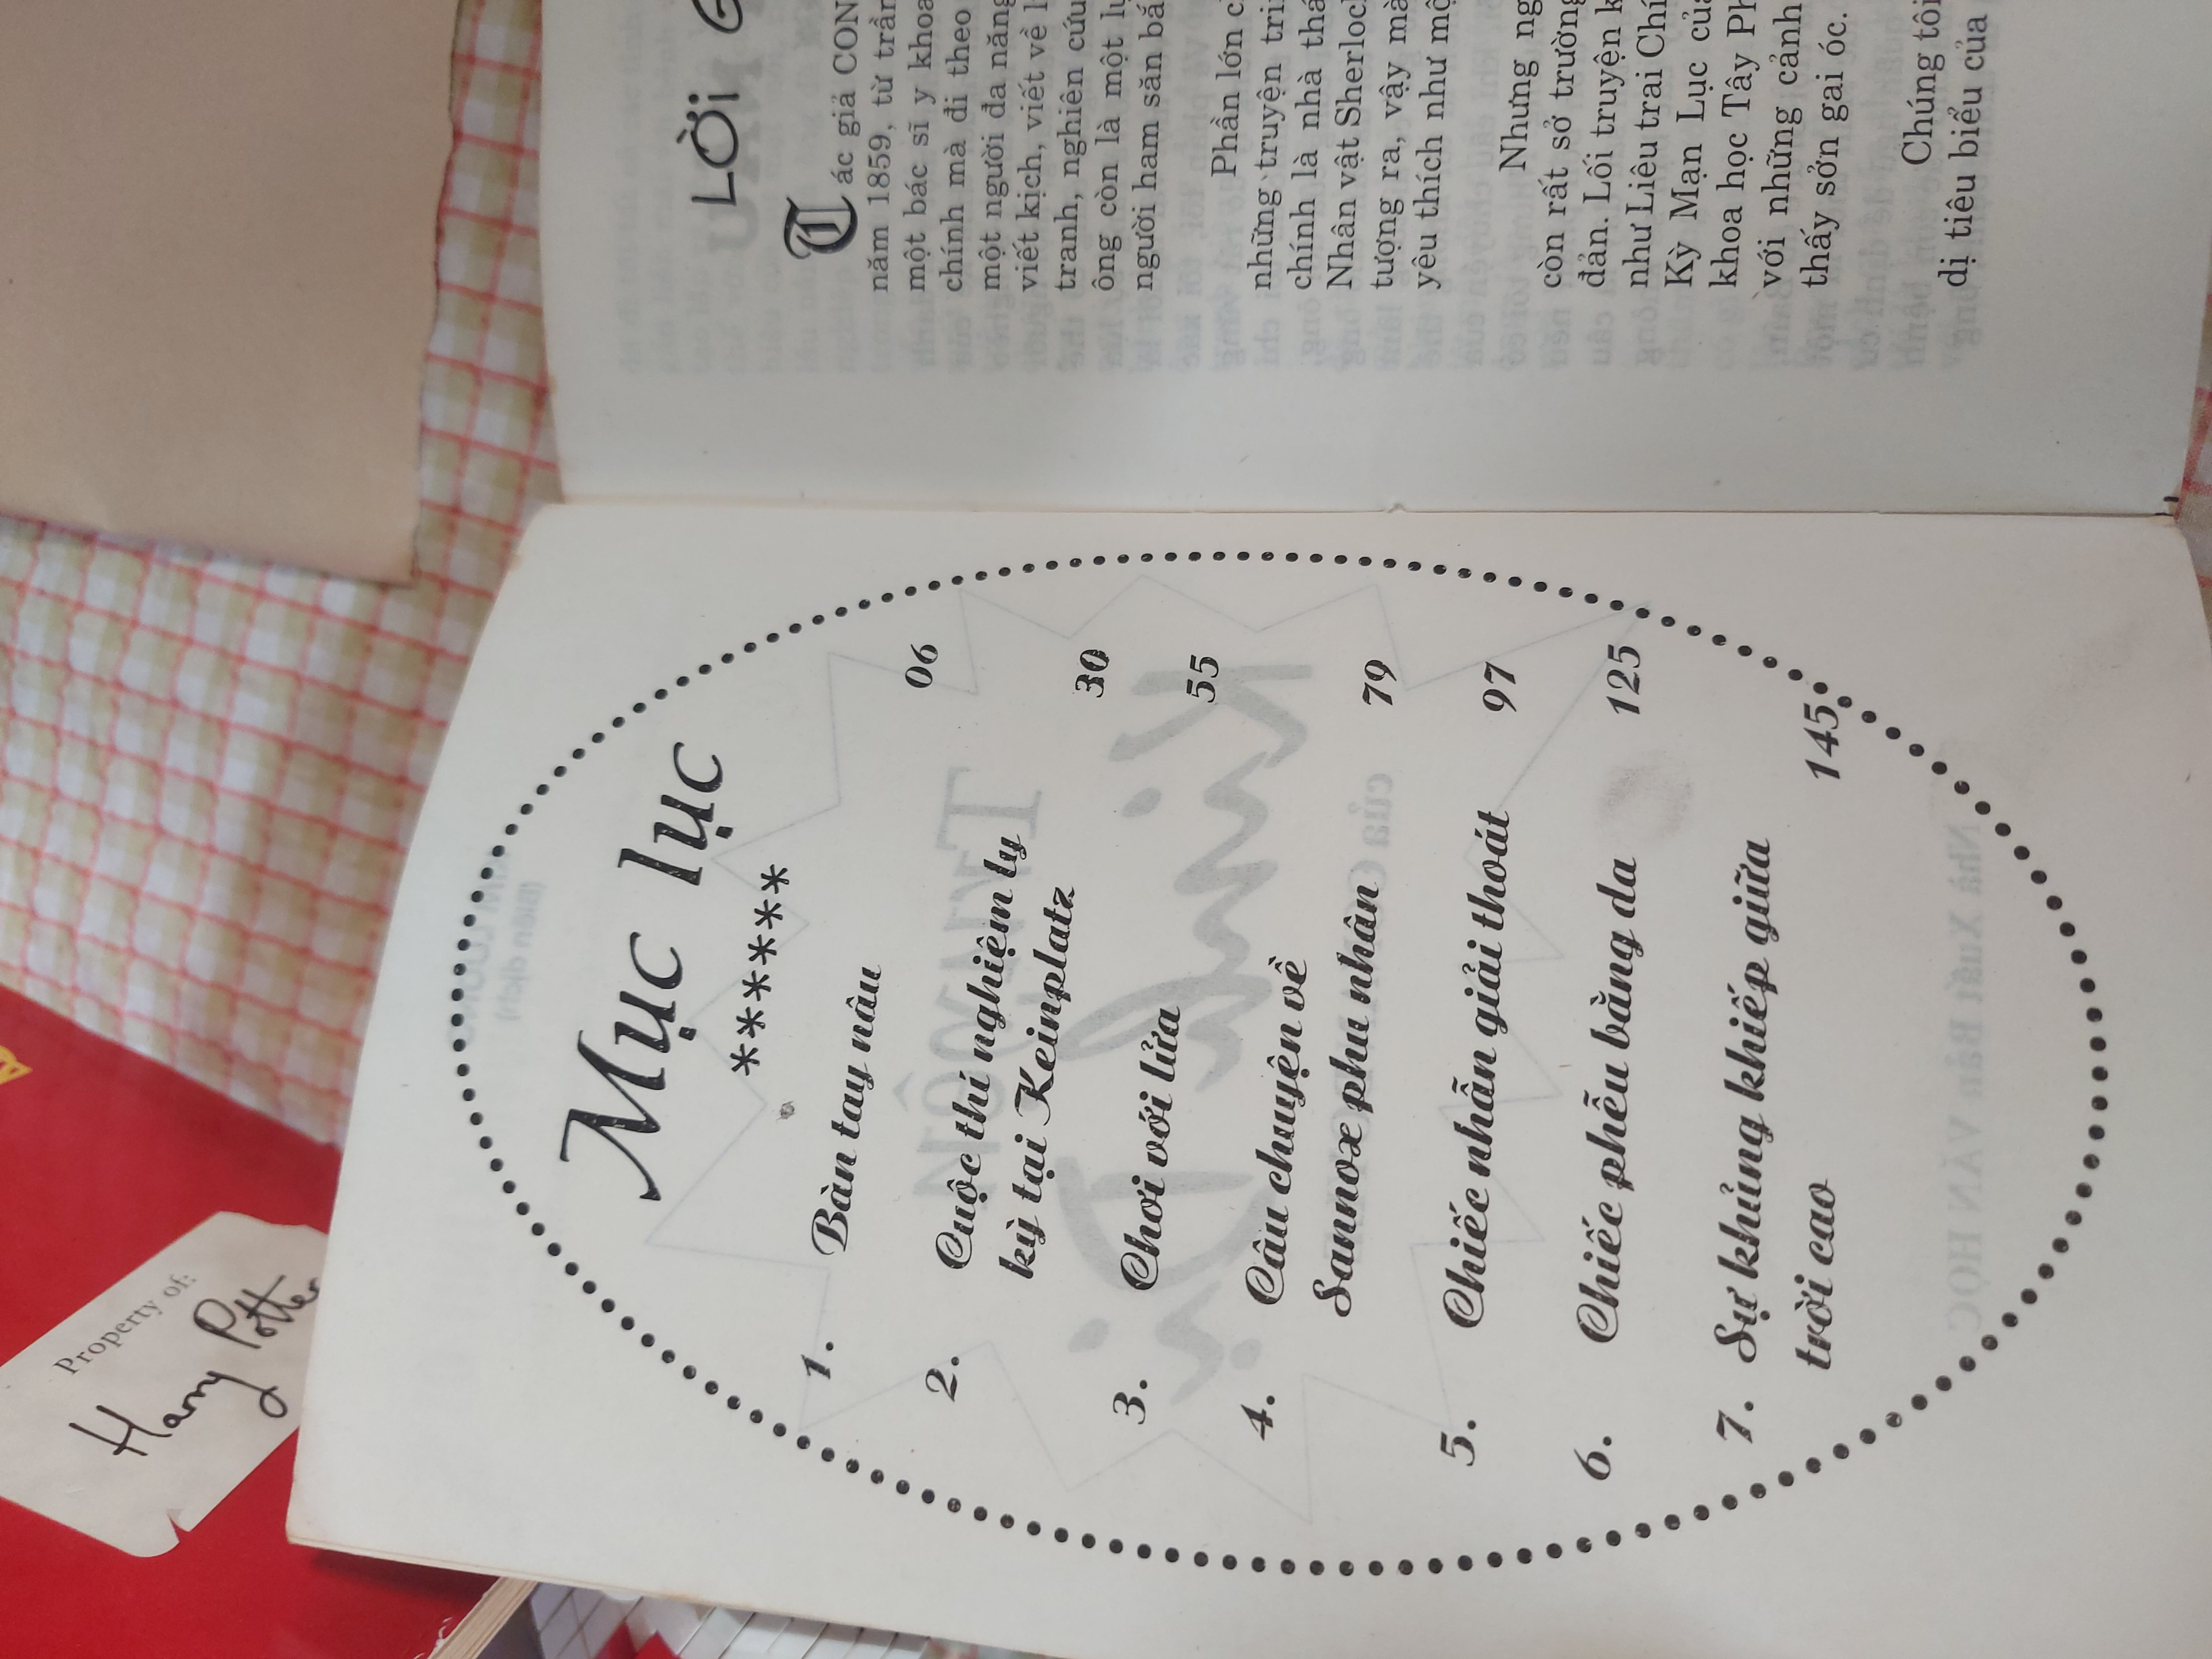 Mục lục
******
1. Bàn tay nâu 06
2. Cuộc thí nghiệm ly
kỳ tại Keinplatz 30
3. Chơi với lửa 55
4. Câu chuyện về
Sannox phu nhân 79
5. Chiếc nhẫn giải thoát 97
6. Chiếc phễu bằng da 125
7. Sự khủng khiếp giữa
trời cao 145
LỜI G
Tác giả CON
năm 1859, từ trần
một bác sĩ y khoa
chính mà đi theo
một người đa năng
viết kịch, viết về l
tranh, nghiên cứu
ông còn là một lụ
người ham săn bắ
Phần lớn c
những truyện trin
chính là nhà thá
Nhân vật Sherloc
tượng ra, vậy mà
yêu thích như mộ
Nhưng ng
còn rất sở trường
đản. Lối truyện k
như Liêu trai Chí
Kỳ Mạn Lục của
khoa học Tây Ph
với những cảnh
thấy sởn gai óc.
Chúng tôi
dị tiêu biểu của
Property of:
Harry Potter